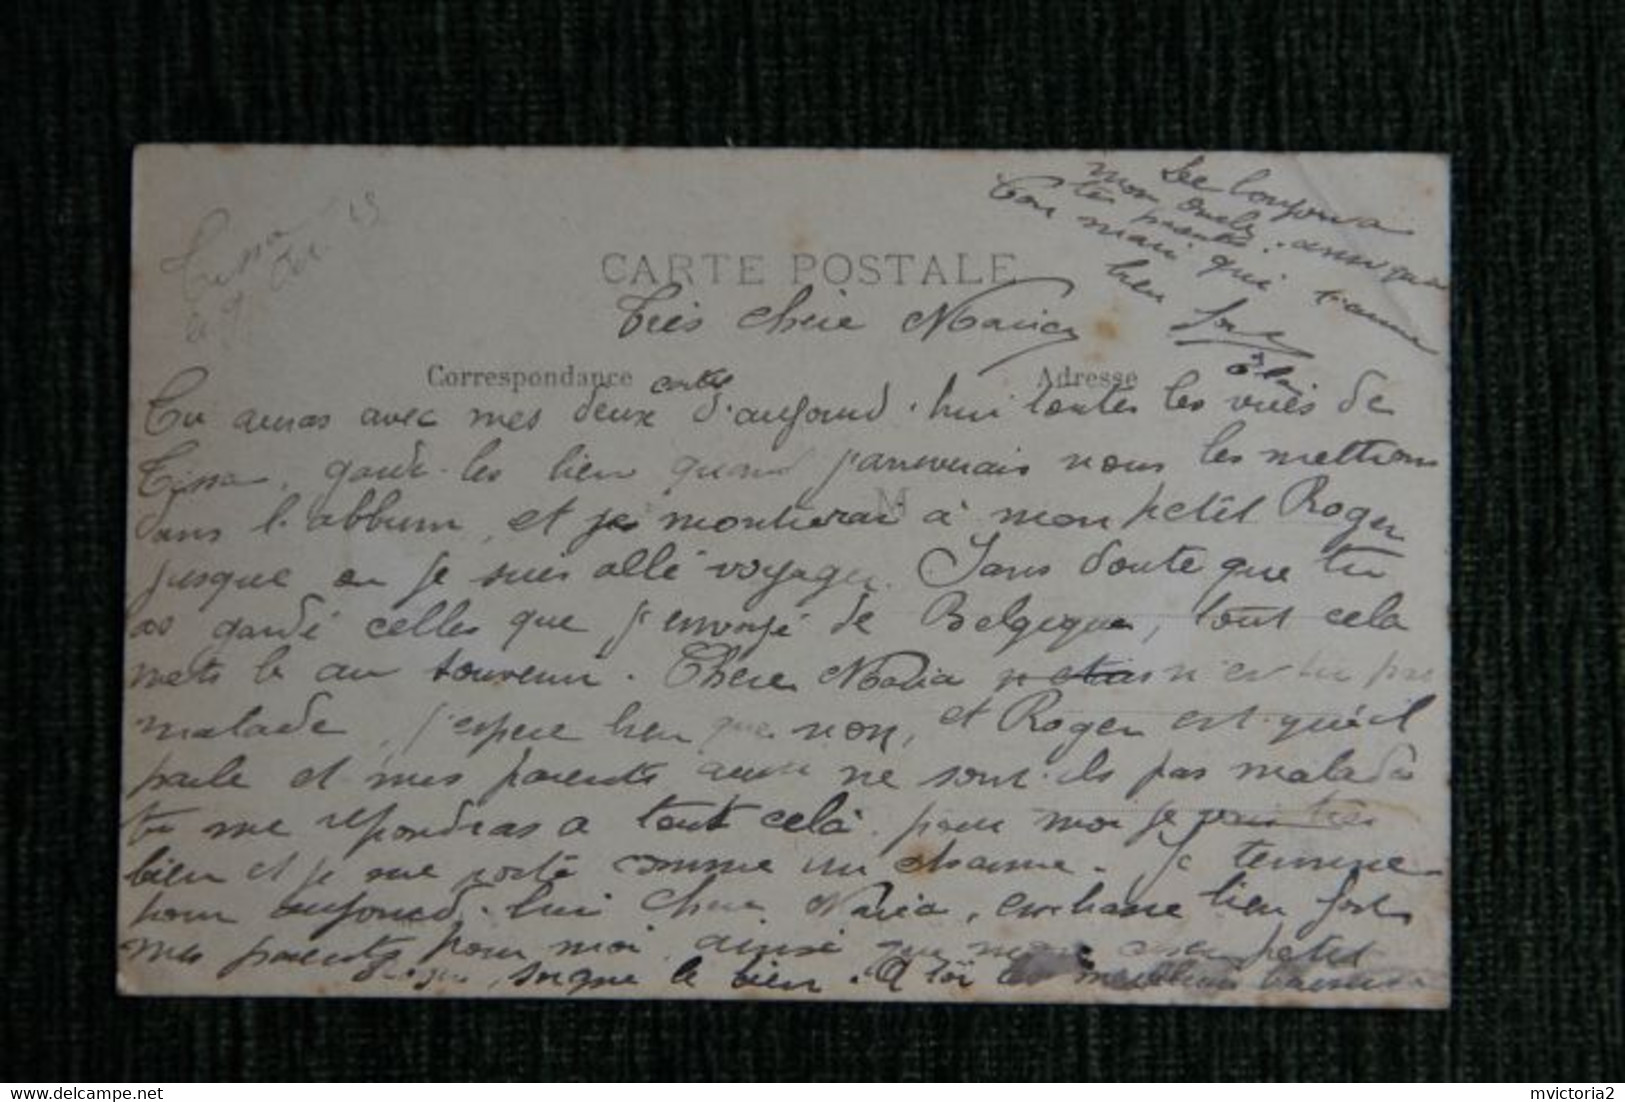 Tissa
le 9
CARTE POSTALE
Très chère Maria
Correspondance
Adresse
cartes
Tu auras avec mes deux d'aujourd'hui toutes les vues de
Tissa, garde-les bien quand j'arriverais nous les mettrons
dans l'album, et je montrerai à mon petit Roger
M
jusque ou je suis allé voyager. Sans doute que tu
as gardé celles que j'envoyé de Belgique, tout cela
mets le au souvenir. Chère Maria n'es tu pas
malade, j'espère bien que non, et Roger est-qu'il
parle et mes parents aussi ne sont-ils pas malades
tu me repondras a tout celà. pour moi je vais très
bien et je me porte comme un charme. Je termine
pour aujourd'hui chère Maria, embrasse bien fort
mes parents pour moi, ainsi que mon petit
Roger, soigne le bien. A toi les meilleurs baisers
De toujours
mon oncle
tes parents. ainsi que
Ton mari qui t'aime
bien fort
mvictoria2
delcampe.net